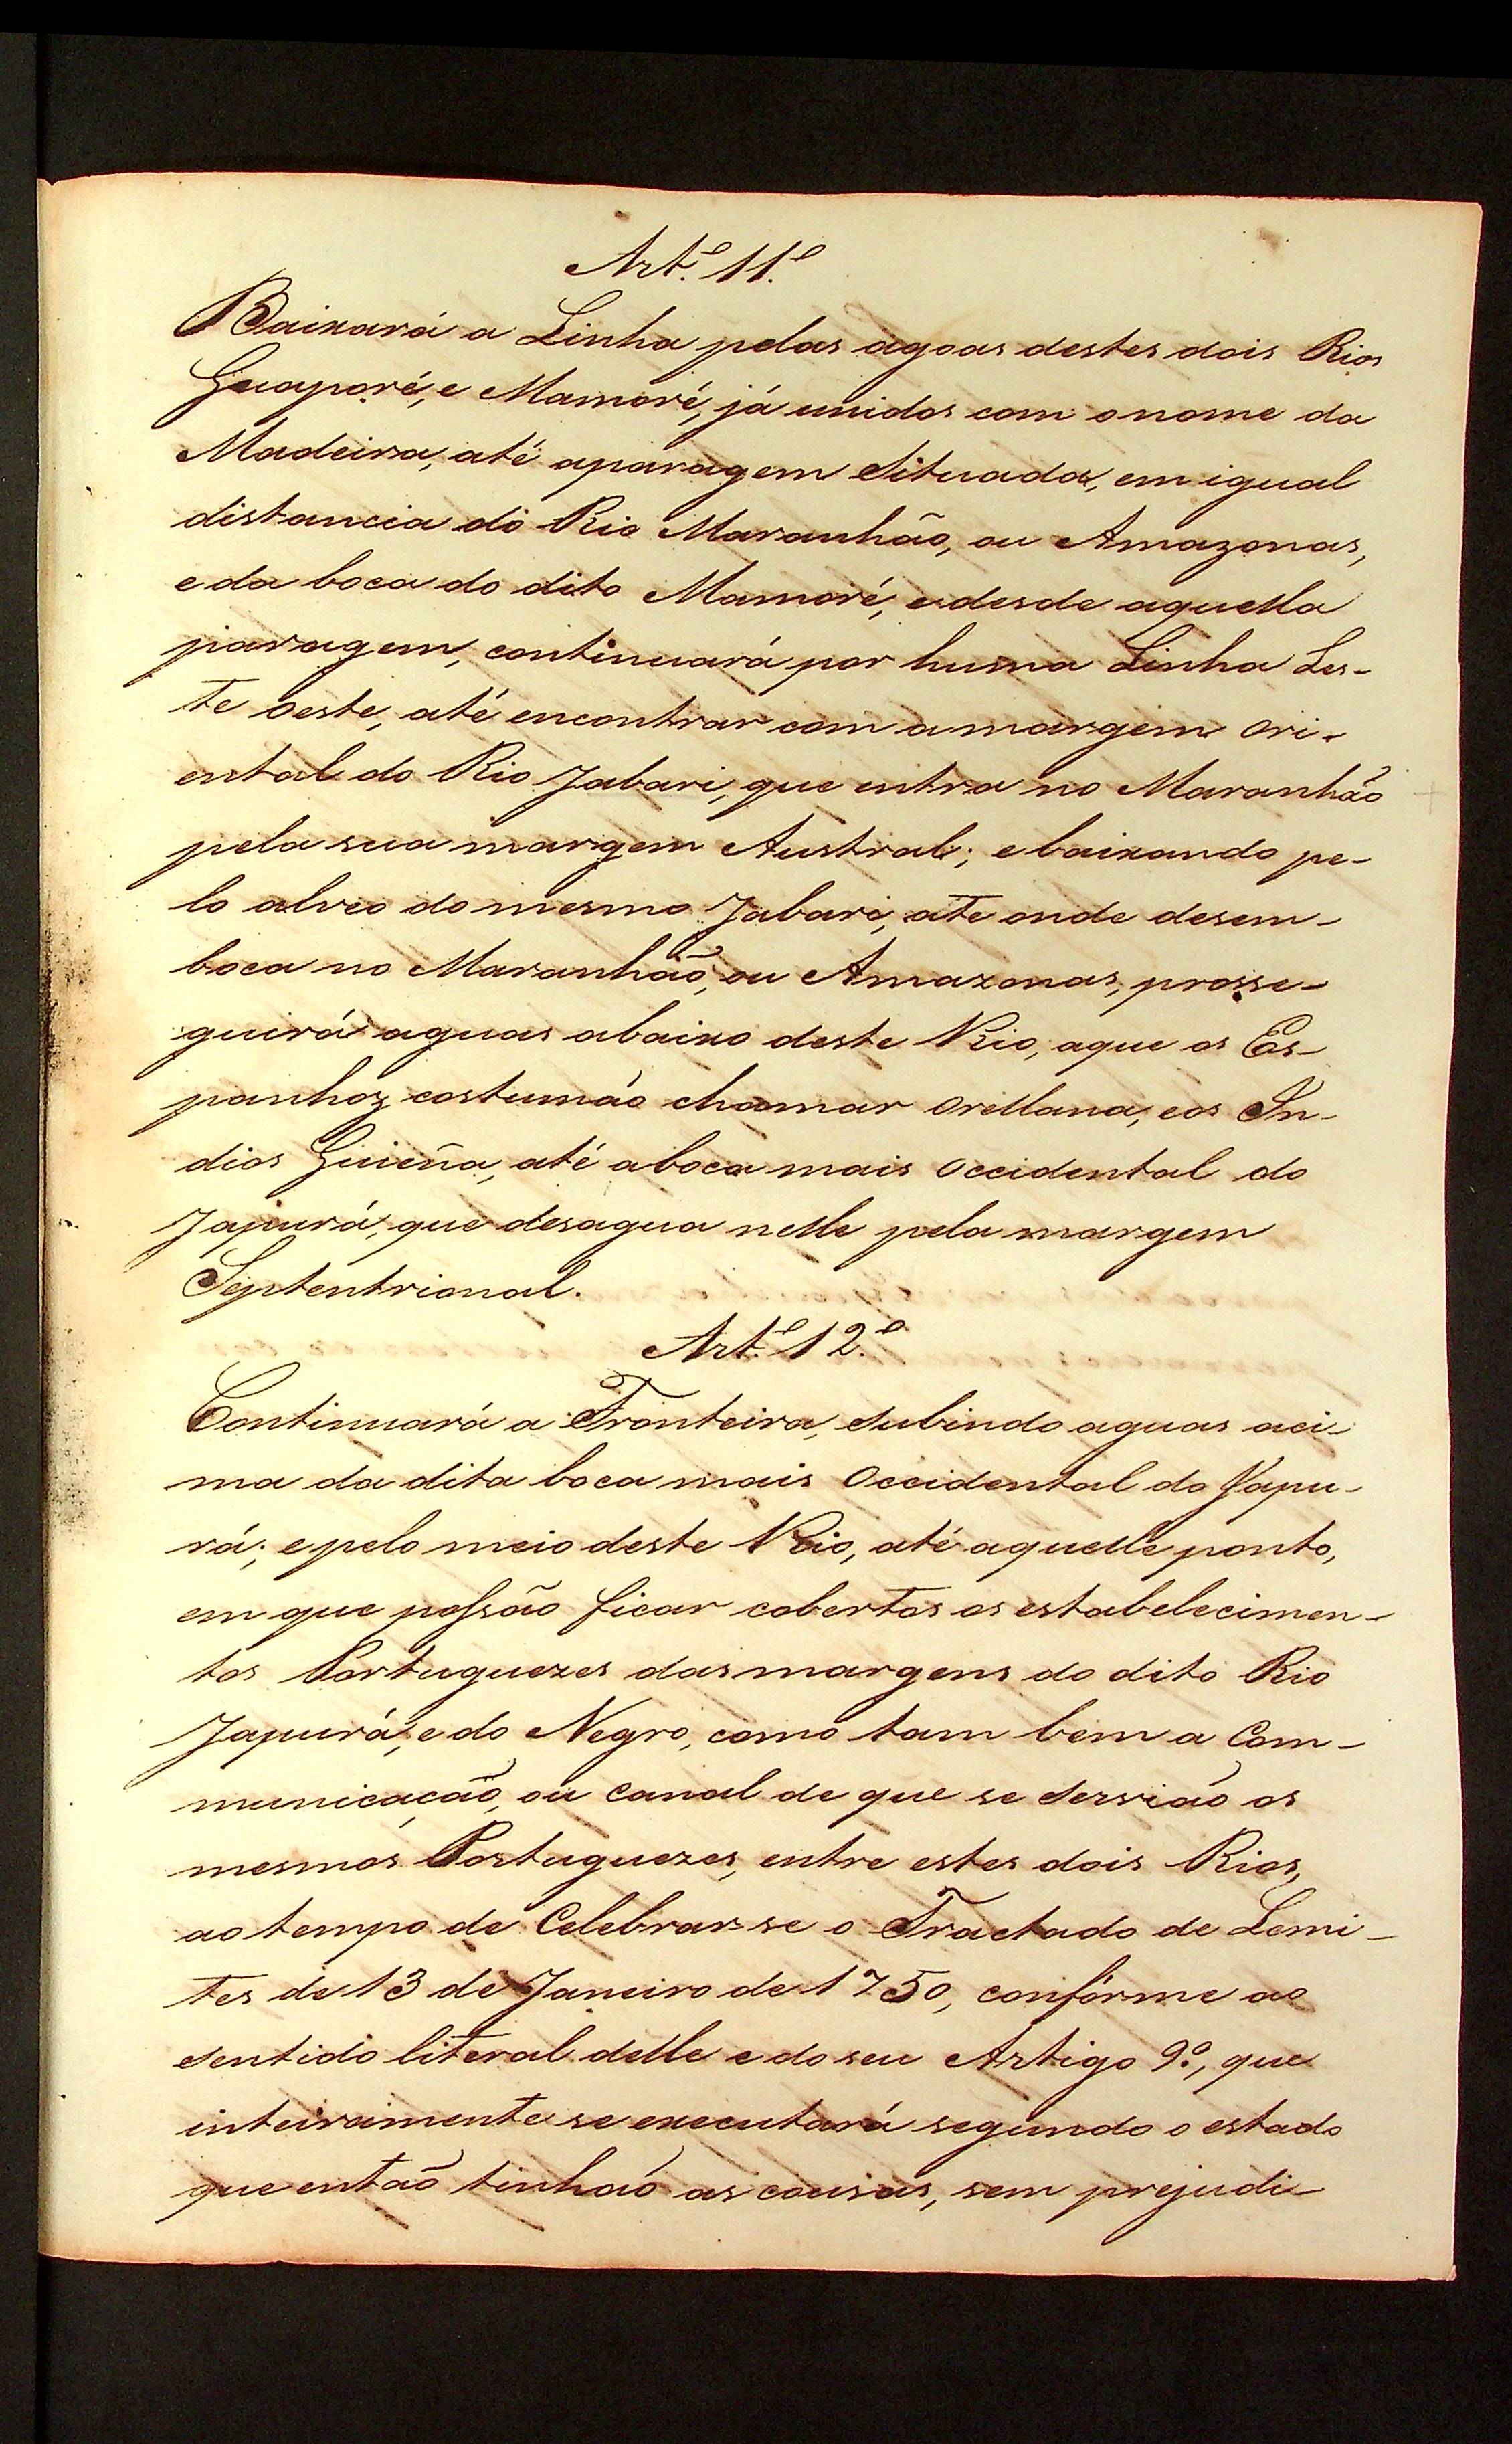 Art.º 11.º
Baixará a Linha pelas agoas destes dois Rios
Guaporé, e Mamoré, já unidos com o nome da
Madeira, até aparagem Situada, em igual
distancia do Rio Maranhão, ou Amazonas,
e da boca do dito Mamoré, e desde aquella
paragem, continuará por huma Linha Les-
te oeste, até encontrar com a margem Ori-
ental do Rio Jabari, que entra no Maranhão
pela sua margem Austral; e baixando pe-
lo alveo do mesmo Jabari, ate onde desem-
boca no Maranhão, ou Amazonas, prosse-
guirá aguas abaixo deste Rio, aque os Es-
panhoz costumão chamar Orellana, eos In-
dios Guieña, até a boca mais Occidental do
Japurá, que desagua nelle pela margem
Septentrional.
Art.º 12.º
Continuará a Fronteira, Subindo aguas aci-
ma da dita boca mais Occidental do Yapu-
rá; e pelo meio deste Rio, até aquelle ponto,
em que possão ficar cobertos os estabelecimen-
tos Portuguezes das margens do dito Rio
Japurá, e do Negro, como tam bem a Com-
municação, ou Canal de que se Servião os
mesmos Portuguezes, entre estes dois Rios,
ao tempo de Celebrar se o Tractado de Lemi-
tes de 13 de Janeiro de 1750, confórme ao
Sentido literal delle e do seu Artigo 9.º, que
inteiramente se executará segundo o estado
que então tinhão as cousas, sem prejudi-